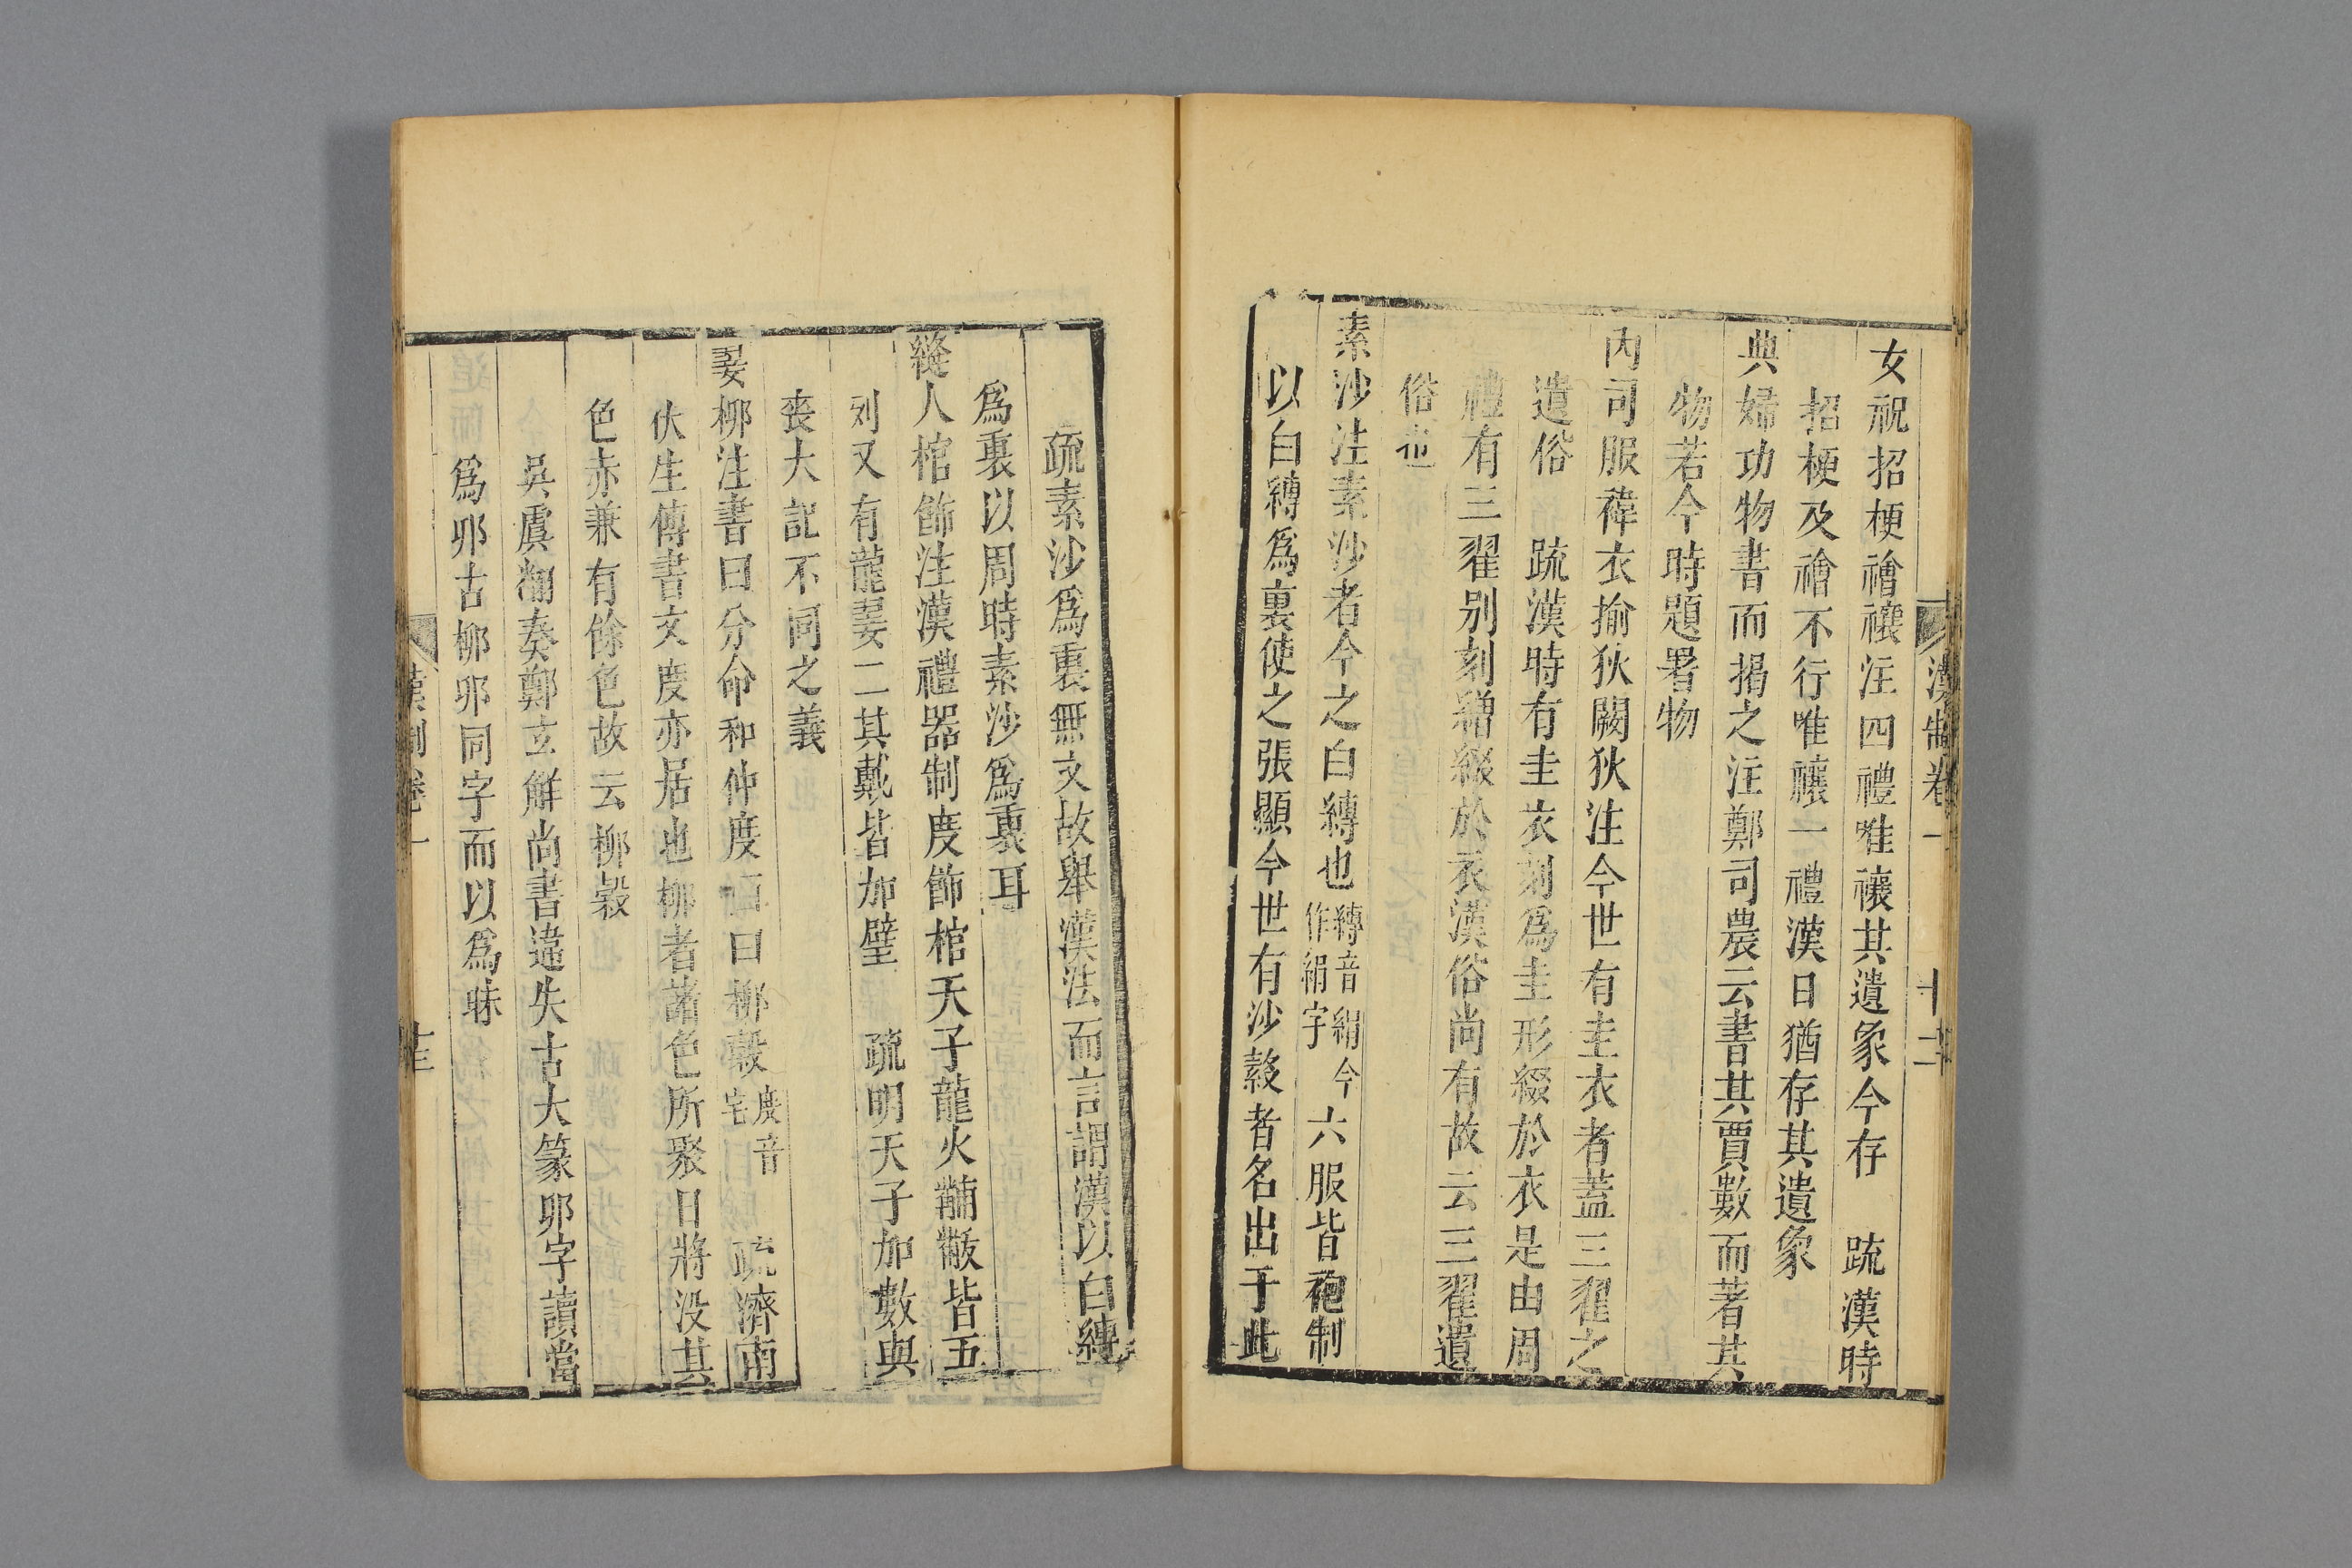 漢制卷一　十二
女祝招梗禬禳注四禮唯禳其遺象今存　疏漢時
招梗及禬不行唯禳一禮漢日猶存其遺象
典婦功物書而揭之注鄭司農云書其賈數而著其
物若今時題署物
內司服褘衣揄狄闕狄注今世有圭衣者蓋三翟之
遺俗　疏漢時有圭衣刻爲圭形綴於衣是由周
禮有三翟别刻繒綴於衣漢俗尚有故云三翟遺
俗也
素沙注素沙者今之白縳也縳音絹今作絹字六服皆袍制
以白縳爲裏使之張顯今世有沙縠者名出于此
疏素沙爲裏無文故舉漢法而言謂漢以白縳
爲裏以周時素沙爲裏耳
縫人棺飾注漢禮器制度飾棺天子龍火黼黻皆五
列又有龍翣二其戴皆加璧　疏明天子加數與
喪大記不同之義
翣柳注書曰分命和仲度西曰柳穀度音宅　疏濟南
伏生傳書文度亦居也柳者諸色所聚日將没其
色赤兼有餘色故云柳穀
吳虞翻奏鄭玄解尚書違失古大篆丣字讀當
爲丣古柳丣同字而以爲昧
漢制卷一　十三